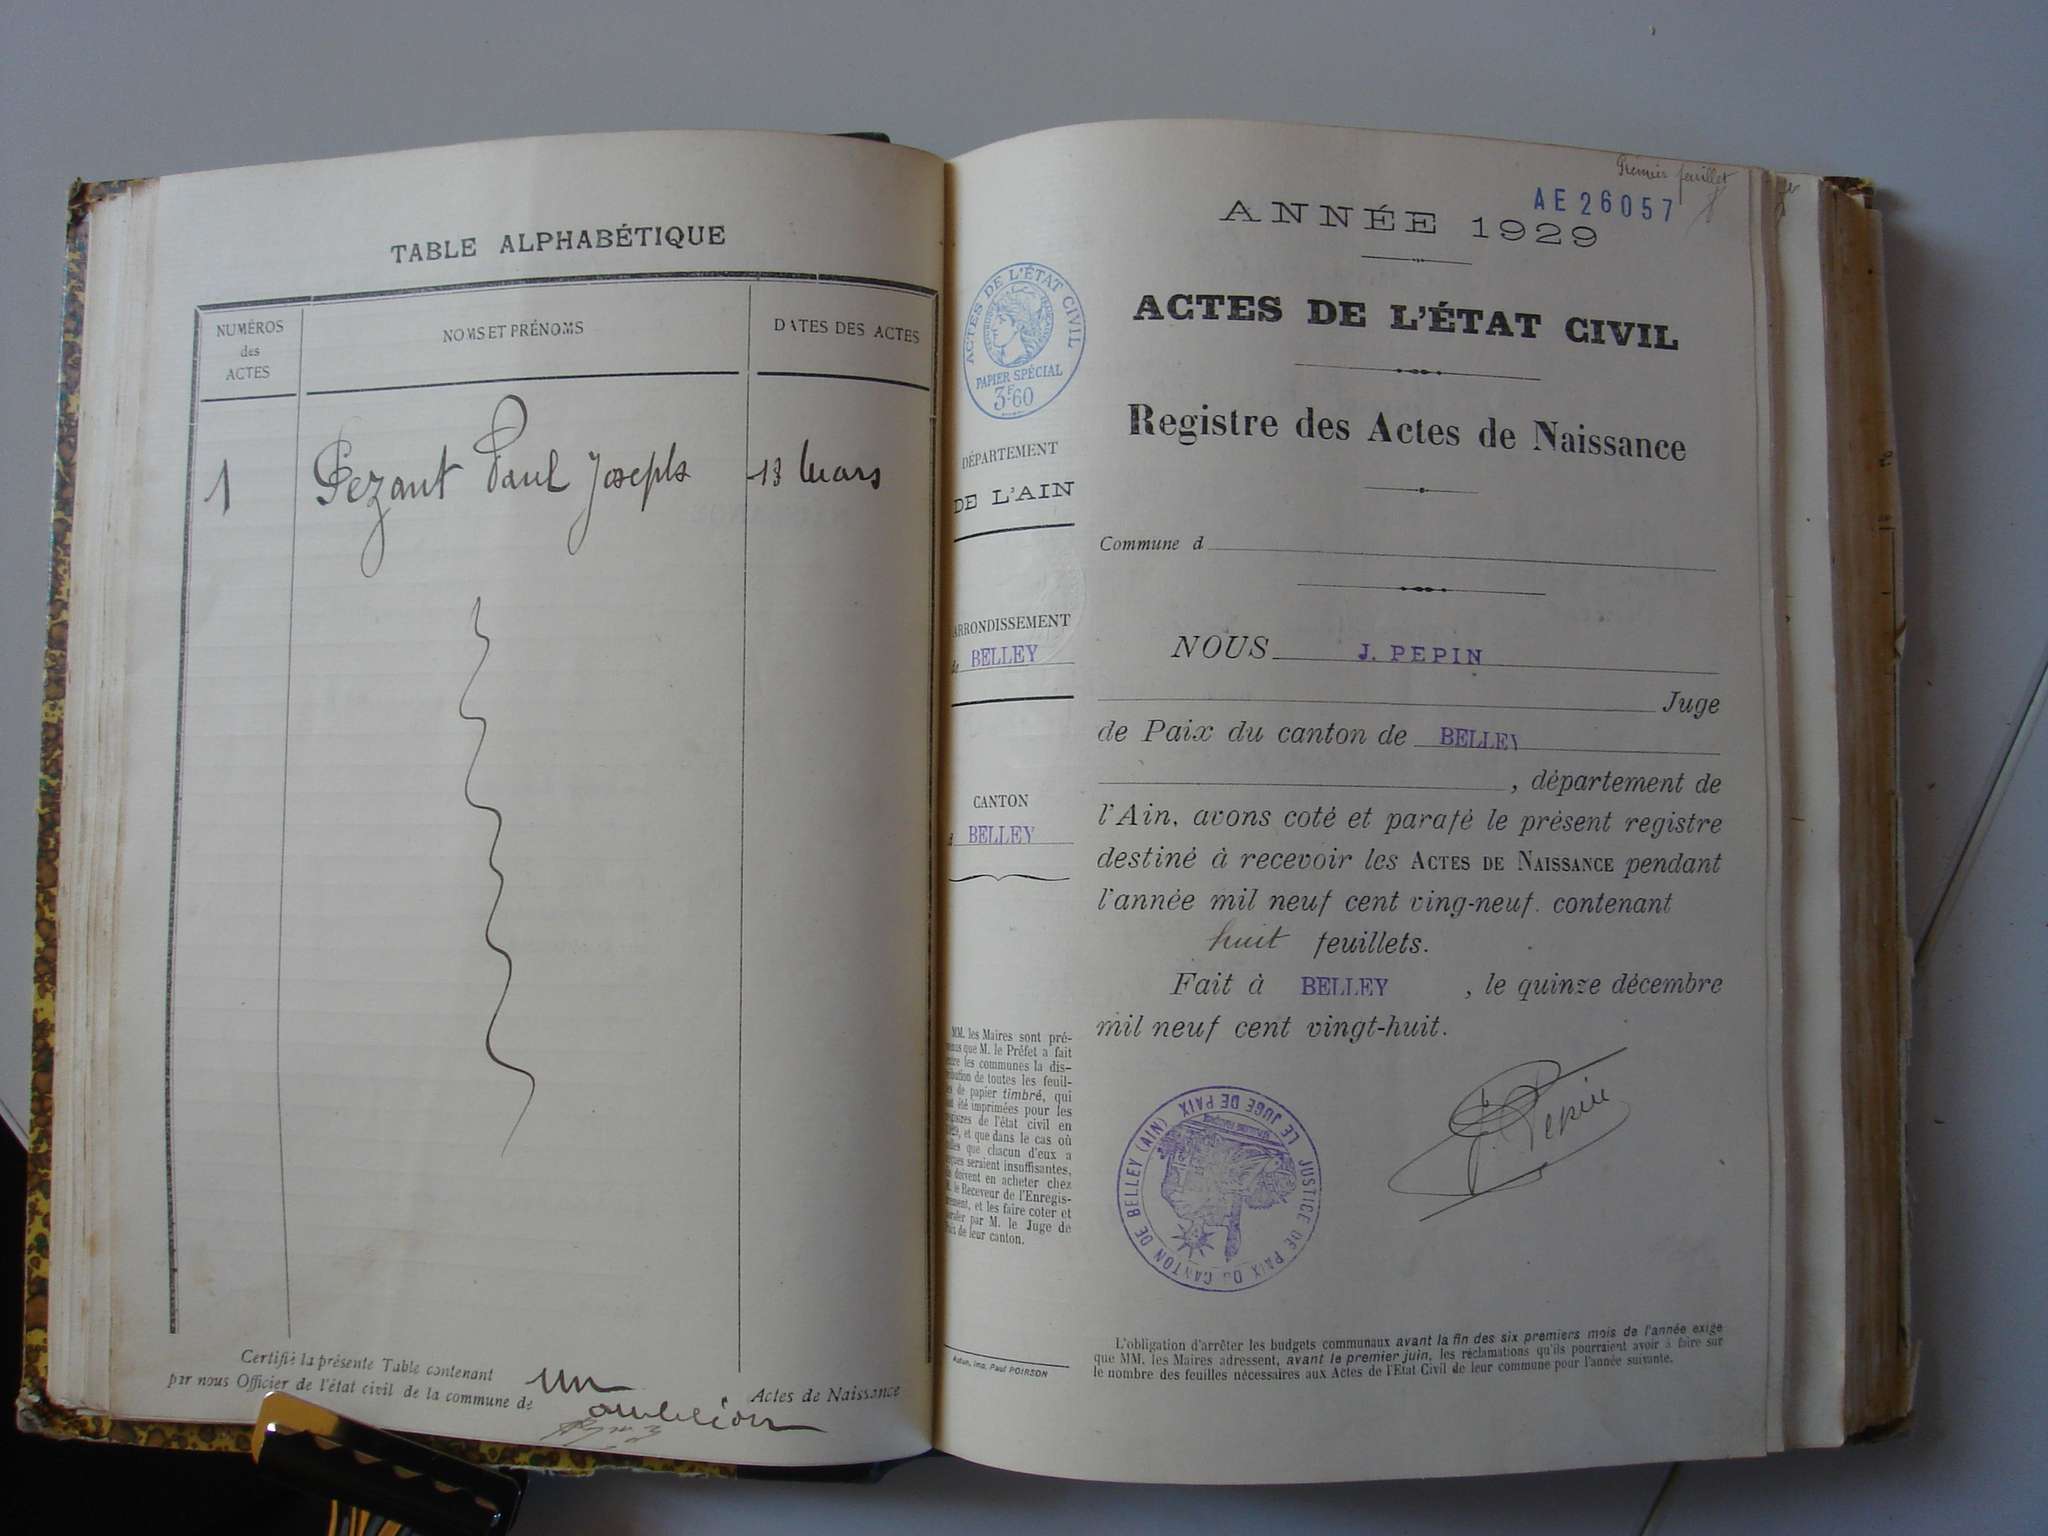 TABLE ALPHABÉTIQUE
NUMÉROS
des
ACTES
NOMS ET PRÉNOMS
DATES DES ACTES
1 Pezant Paul Joseph 13 Mars
Certifié la présente Table contenant un Actes de Naissance
par nous Officier de l'état civil de la commune de ambléon
Premier feuillet
AE26057
ANNÉE 1929
ACTES DE L'ÉTAT CIVIL
RÉPUBLIQUE FRANÇAISE
PAPIER SPÉCIAL
3F60
ACTES DE L'ÉTAT CIVIL
Registre des Actes de Naissance
DÉPARTEMENT
DE L'AIN
Commune d
ARRONDISSEMENT
de BELLEY
CANTON
d BELLEY
NOUS J. PEPIN
Juge
de Paix du canton de BELLEY
, département de
l'Ain, avons coté et parafé le présent registre
destiné à recevoir les ACTES DE NAISSANCE pendant
l'année mil neuf cent ving-neuf. contenant
huit feuillets.
Fait à BELLEY , le quinze décembre
mil neuf cent vingt-huit.
J. Pepin
JUSTICE DE PAIX DU CANTON DE BELLEY (AIN)
LE JUGE DE PAIX
MM. les Maires sont pré-
venus que M. le Préfet a fait
entre les communes la dis-
tribution de toutes les feuil-
les de papier timbré, qui
ont été imprimées pour les
de l'état civil en
, et que dans le cas où
celles que chacun d'eux a
reçues seraient insuffisantes,
ils doivent en acheter chez
M. le Receveur de l'Enregis-
trement, et les faire coter et
parafer par M. le Juge de
Paix de leur canton.
Autun, imp. Paul POIRSON
L'obligation d'arrêter les budgets communaux avant la fin des six premiers mois de l'année exige
que MM. les Maires adressent, avant le premier juin, les réclamations qu'ils pourraient avoir à faire sur
le nombre des feuilles nécessaires aux Actes de l'Etat Civil de leur commune pour l'année suivante.